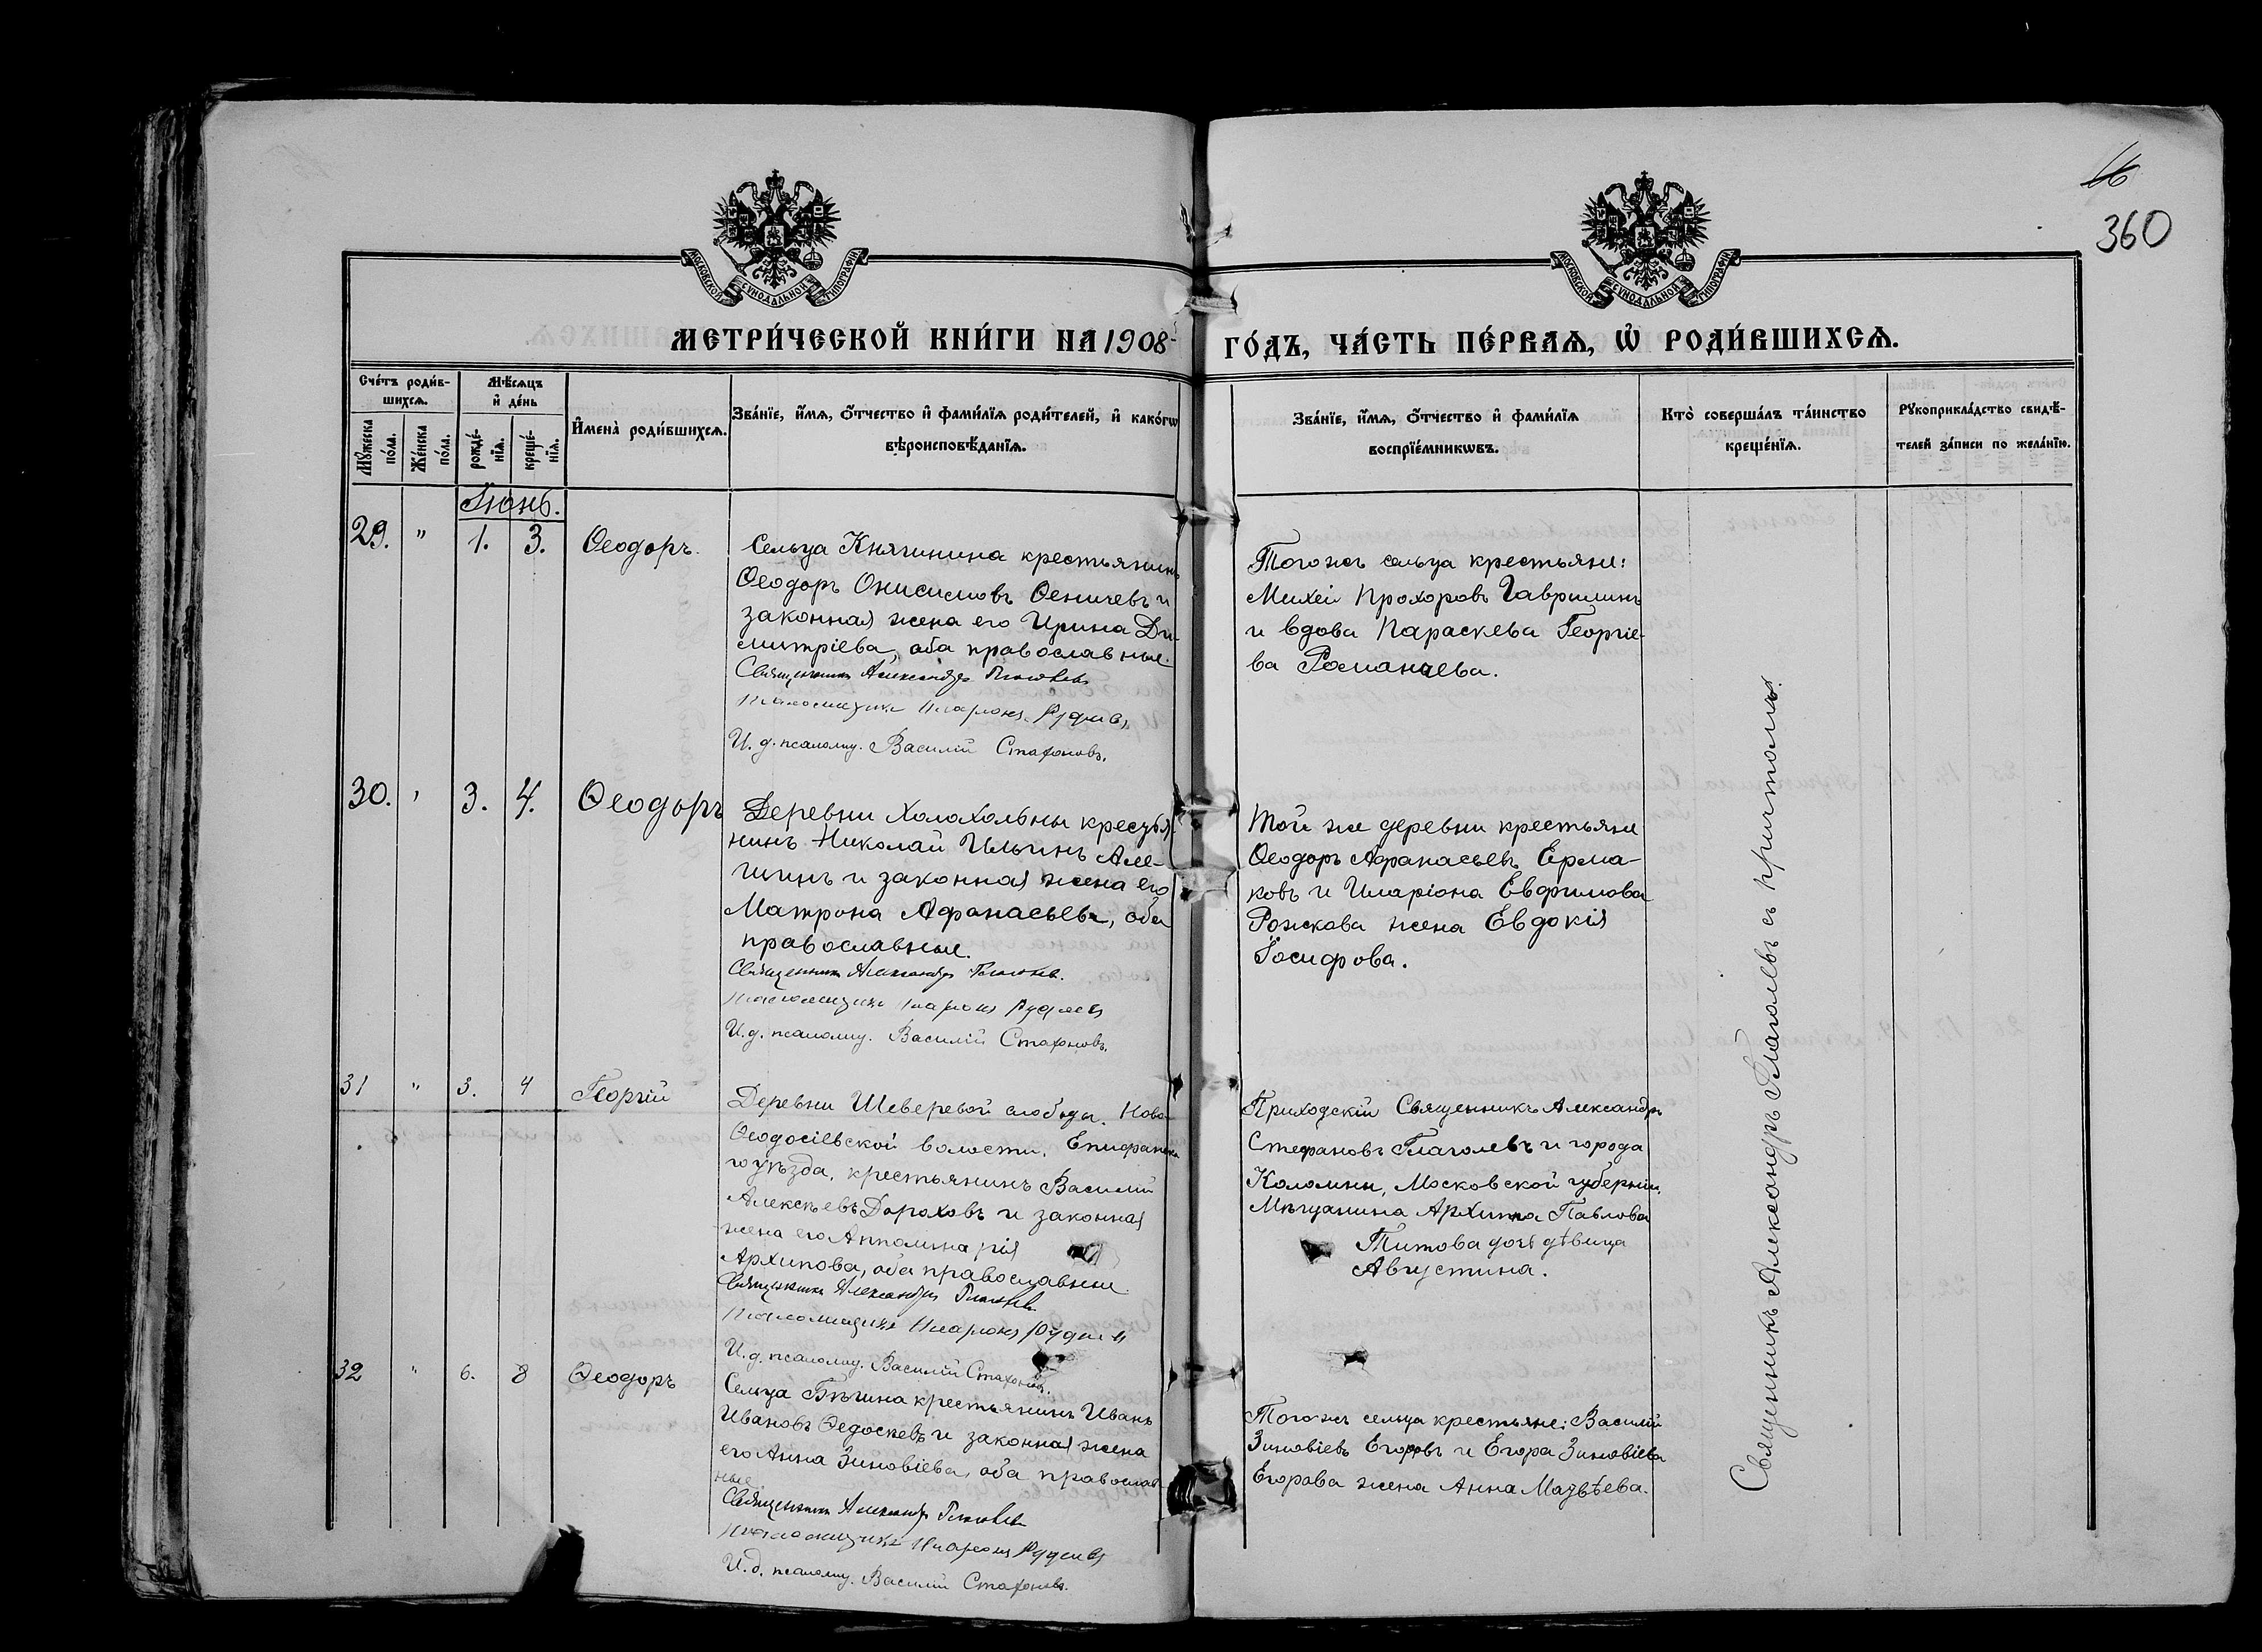 16
360
МОСКОВСКОЙ СѴНОДАЛЬНОЙ ТИПОГРАФІИ
МОСКОВСКОЙ СѴНОДАЛЬНОЙ ТИПОГРАФІИ
МЕТРИ́ЧЕСКОЙ КНИ́ГИ НА 1908
ГО́ДЪ, ЧА́СТЬ ПЕ́РВАѦ, Ѡ҆ РОДИ́ВШИХСѦ.
Сче́тъ роди́в-
шихсѧ.
Мꙋ́жеска по́ла.
Же́нска по́ла.
Мѣ́сѧцъ
и҆ де́нь
рожде́-
нїѧ.
креще́-
нїѧ.
И҆мена̀ роди́вшихсѧ.
Зва́нїе, и҆́мѧ, ѻ҆́тчество и҆ фами́лїѧ роди́телей, и҆ како́гѡ
вѣроисповѣ́данїѧ.
Зва́нїе, и҆́мѧ, ѻ҆́тчество и҆ фами́лїѧ
воспрїе́мникѡвъ.
Кто̀ соверша́лъ та́инство
креще́нїѧ.
Рꙋкоприкла́дство свидѣ́-
телей за́писи по жела́нїю.
Іюнь.
29. " 1. 3. Ѳеодоръ.
Сельца Княгинина крестьянинъ
Ѳеодоръ Онисимовъ Ѳеничевъ и
законная жена его Ирина Ди-
митріева, оба православные.
Священникъ Александръ Глаголевъ
Псаломщикъ Иларіонъ Рудневъ
И. д. псаломщ. Василій Стафоновъ.
Тогожъ сельца крестьяне:
Михей Прохоровъ Гаврилинъ
и вдова Параскева Георгіе-
ва Романцева.
30. " 3. 4. Ѳеодоръ
Деревни Холохольны крестья-
нинъ Николай Ильинъ Але-
шинъ и законная жена его
Матрона Афанасьева, оба
православные.
Священникъ Александръ Глаголевъ.
Псаломщикъ Иларіонъ Рудневъ
И. д. псаломщ. Василій Стафоновъ.
Той же деревни крестьяне
Ѳеодоръ Афанасьевъ Ерма-
ковъ и Иларіона Евфимова
Рожкова жена Евдокія
Іосифова.
31 " 3. 4 Георгій
Деревни Шеверевой слободы, Ново-
Ѳеодосіевской волости, Епифанска-
го уѣзда, крестьянинъ Василій
Алексѣевъ Дороховъ и законная
жена его Апполинарія
Архипова, оба православные.
Священникъ Александръ Глаголевъ
Псаломщикъ Иларіонъ Рудневъ
И. д. псаломщ. Василій Стафоновъ.
Приходскій Священникъ Александръ
Стефановъ Глаголевъ и города
Коломны, Московской губерніи,
Мѣщанина Архипа Павлова
Титова дочь дѣвица
Августина.
32 " 6. 8 Ѳеодоръ
Сельца Бѣгина крестьянинъ Иванъ
Ивановъ Ѳедосѣевъ и законная жена
его Анна Зиновіева, оба православ-
ные
Священникъ Александръ Глаголевъ
Псаломщикъ Иларіонъ Рудневъ
И. д. псаломщ. Василій Стафоновъ.
Тогожъ сельца крестьяне: Василій
Зиновіевъ Егоровъ и Егора Зиновіева
Егорова жена Анна Матвѣева.
Священникъ Александръ Глаголевъ съ причтомъ.